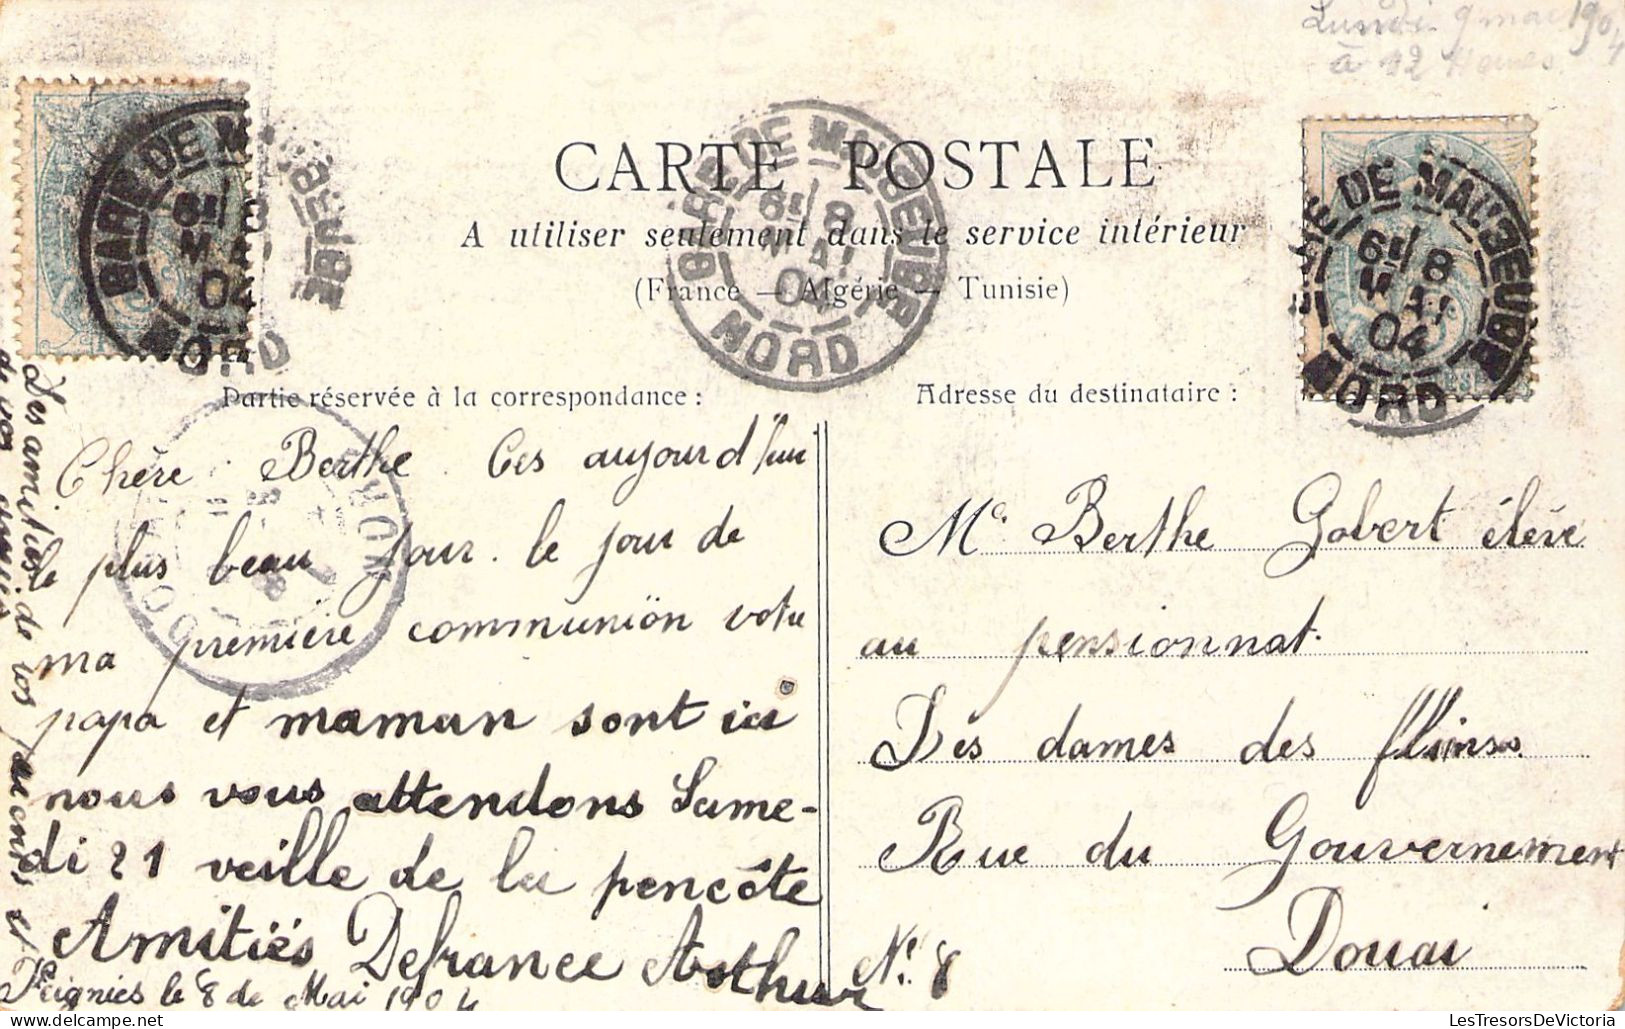 Lundi 9 mai 1904
à 12 Heures
CARTE POSTALE
A utiliser seulement dans le service intérieur
(France — Algérie — Tunisie)
GARE DE MAUBEUGE
6E 8
MAI
04
NORD
GARE DE MAUBEUGE
6E 8
MAI
04
NORD
GARE DE MAUBEUGE
6E 8
MAI
04
NORD
Partie réservée à la correspondance :
Chère Berthe. Ces aujourd'hui
le plus beau jour. le jour de
ma première communion votre
papa et maman sont ici
nous vous attendons Same-
di 21 veille de la pencôte
Amitiés Defrance Arthur
Feignies le 8 de Mai 1904
Les amities de vos parents et
de vos
DOUAI
NORD
Adresse du destinataire :
Me Berthe Gobert éleve
au pensionnat
Des dames des flinss
Rue du Gouvernement
No. 8 Douai
LesTresorsDeVictoria